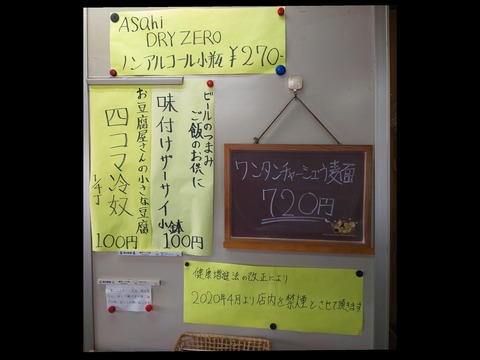 ASAhi
DRY ZERO
ノンアルコール小瓶 ¥270-
ビールのつまみ
ご飯のお供に
味付けザーサイ
小鉢 100円
お豆腐屋さんの小さな豆腐
四コマ冷奴
1/4丁
100円
ワンタンチャーシュウ麺
720円
健康増進法の改正により
2020年4月より店内を禁煙とさせて頂きます